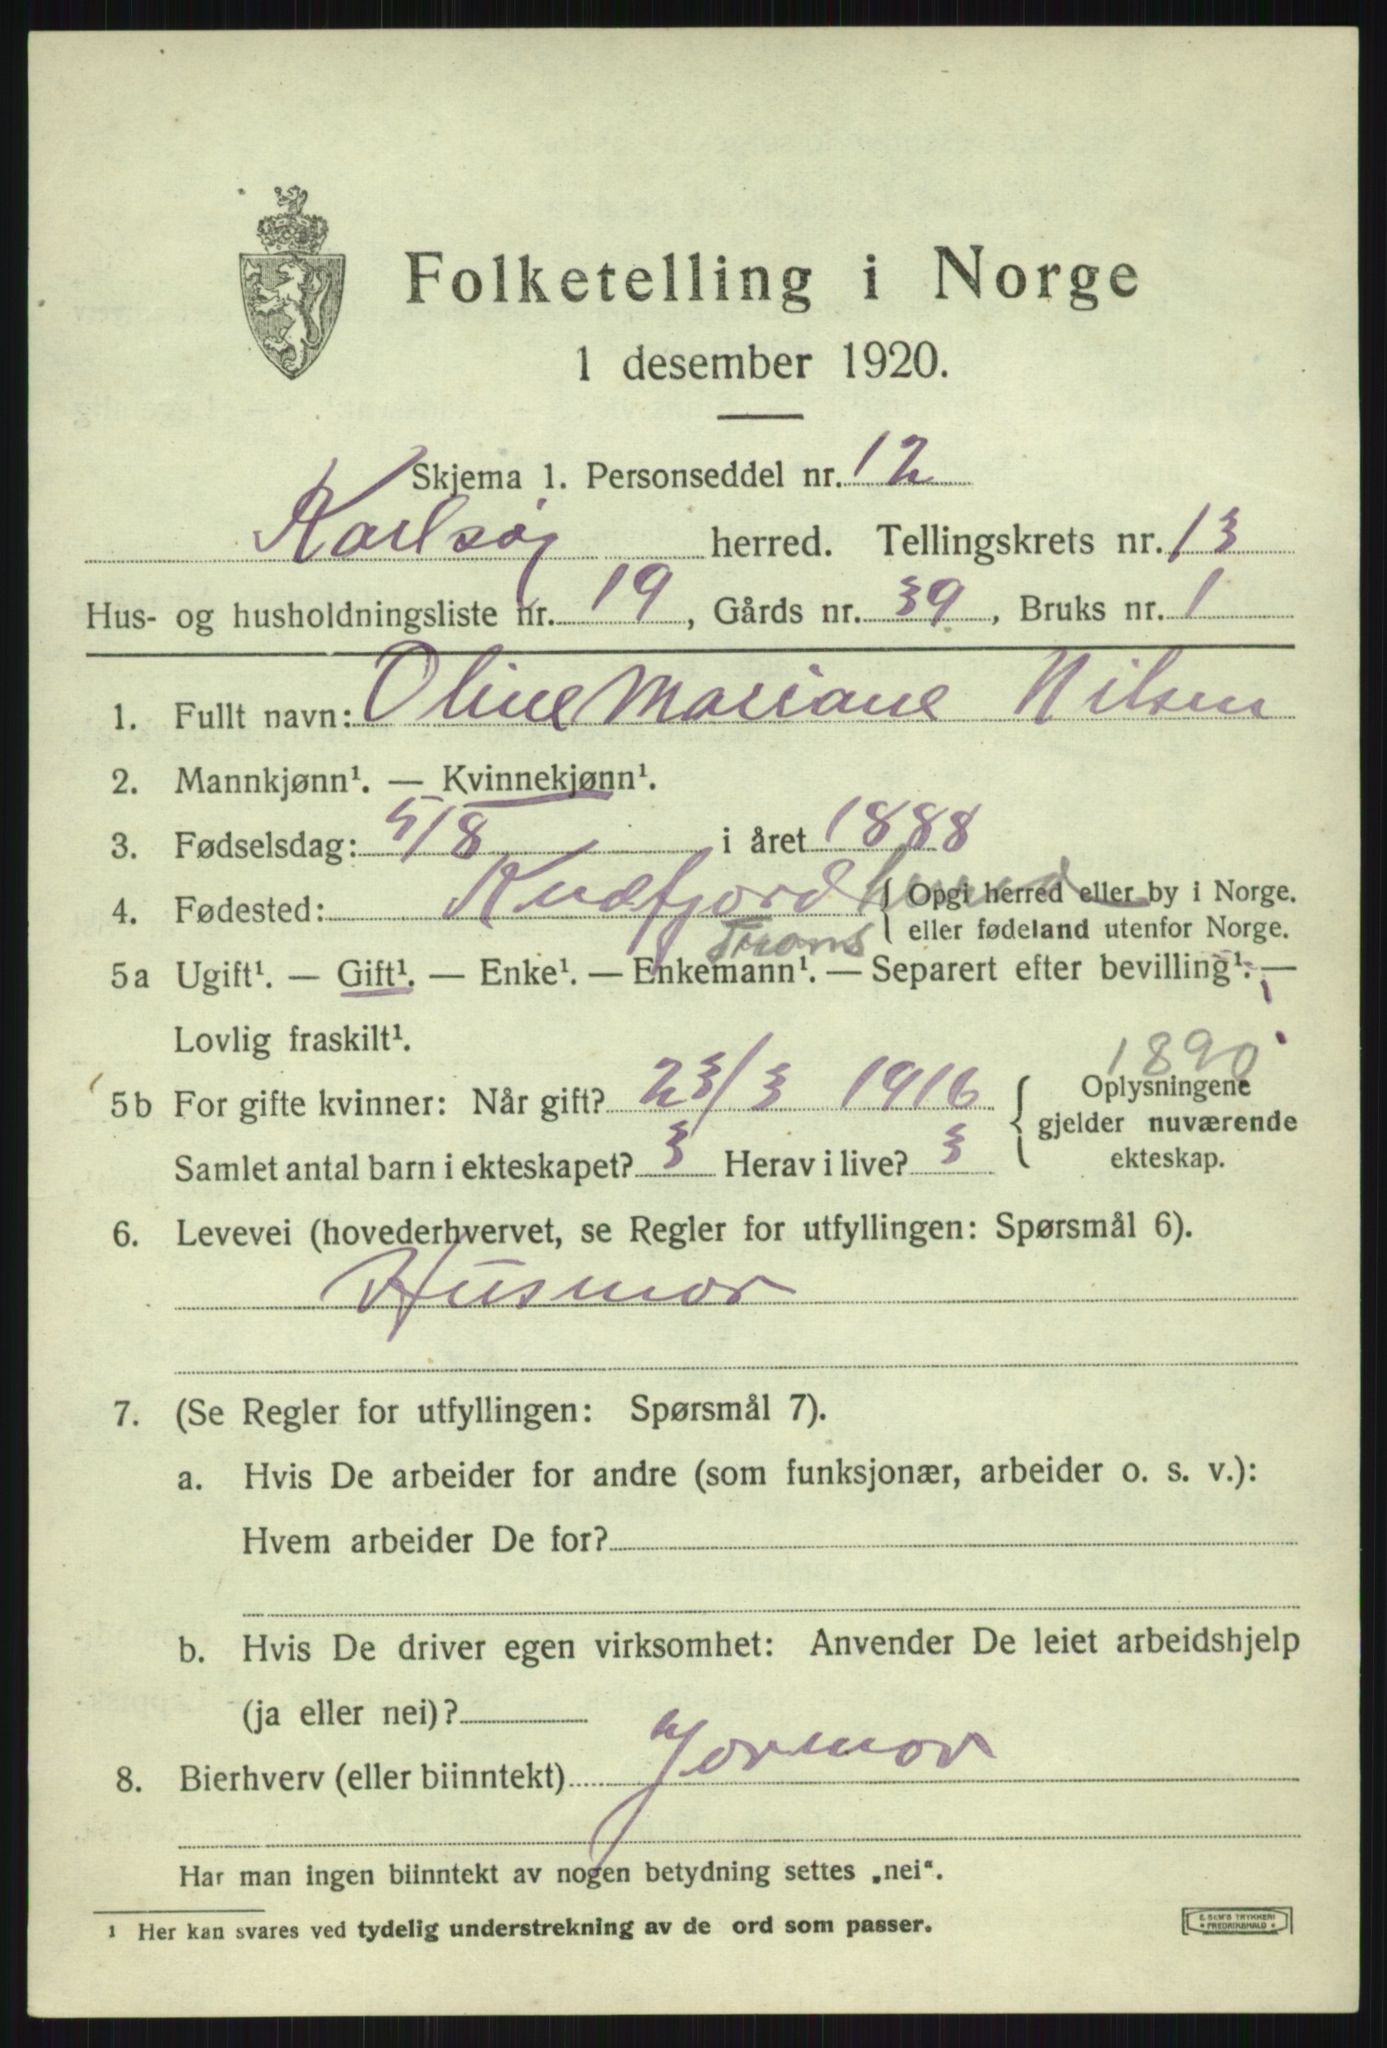 Folketelling i Norge
1 desember 1920.
Skjema 1. Personseddel nr. 12
Karlsøy herred. Tellingskrets nr. 13
Hus- og husholdningsliste nr. 19, Gårds nr. 39, Bruks nr. 1
1. Fullt navn: Oline Mariane Nilsen
2. Mannkjønn¹. — Kvinnekjønn¹.
3. Fødselsdag: 5/8 i året 1888
4. Fødested: Kvæfjord herred { Opgi herred eller by i Norge.
Troms { eller fødeland utenfor Norge.
5a Ugift¹. — Gift¹. — Enke¹. — Enkemann¹. — Separert efter bevilling¹. —
Lovlig fraskilt¹.
1890
5b For gifte kvinner: Når gift? 23/3 1916 { Oplysningene
gjelder nuværende
Samlet antal barn i ekteskapet? 3 Herav i live? 3
ekteskap.
6. Levevei (hovederhvervet, se Regler for utfyllingen: Spørsmål 6).
Husmor
7. (Se Regler for utfyllingen: Spørsmål 7).
a. Hvis De arbeider for andre (som funksjonær, arbeider o. s. v.):
Hvem arbeider De for?
b. Hvis De driver egen virksomhet: Anvender De leiet arbeidshjelp
(ja eller nei)?
8. Bierhverv (eller biinntekt) Jormor
Har man ingen biinntekt av nogen betydning settes „nei“.
¹ Her kan svares ved tydelig understrekning av de ord som passer.
E. SEM'S TRYKKERI
FREDRIKSHALD